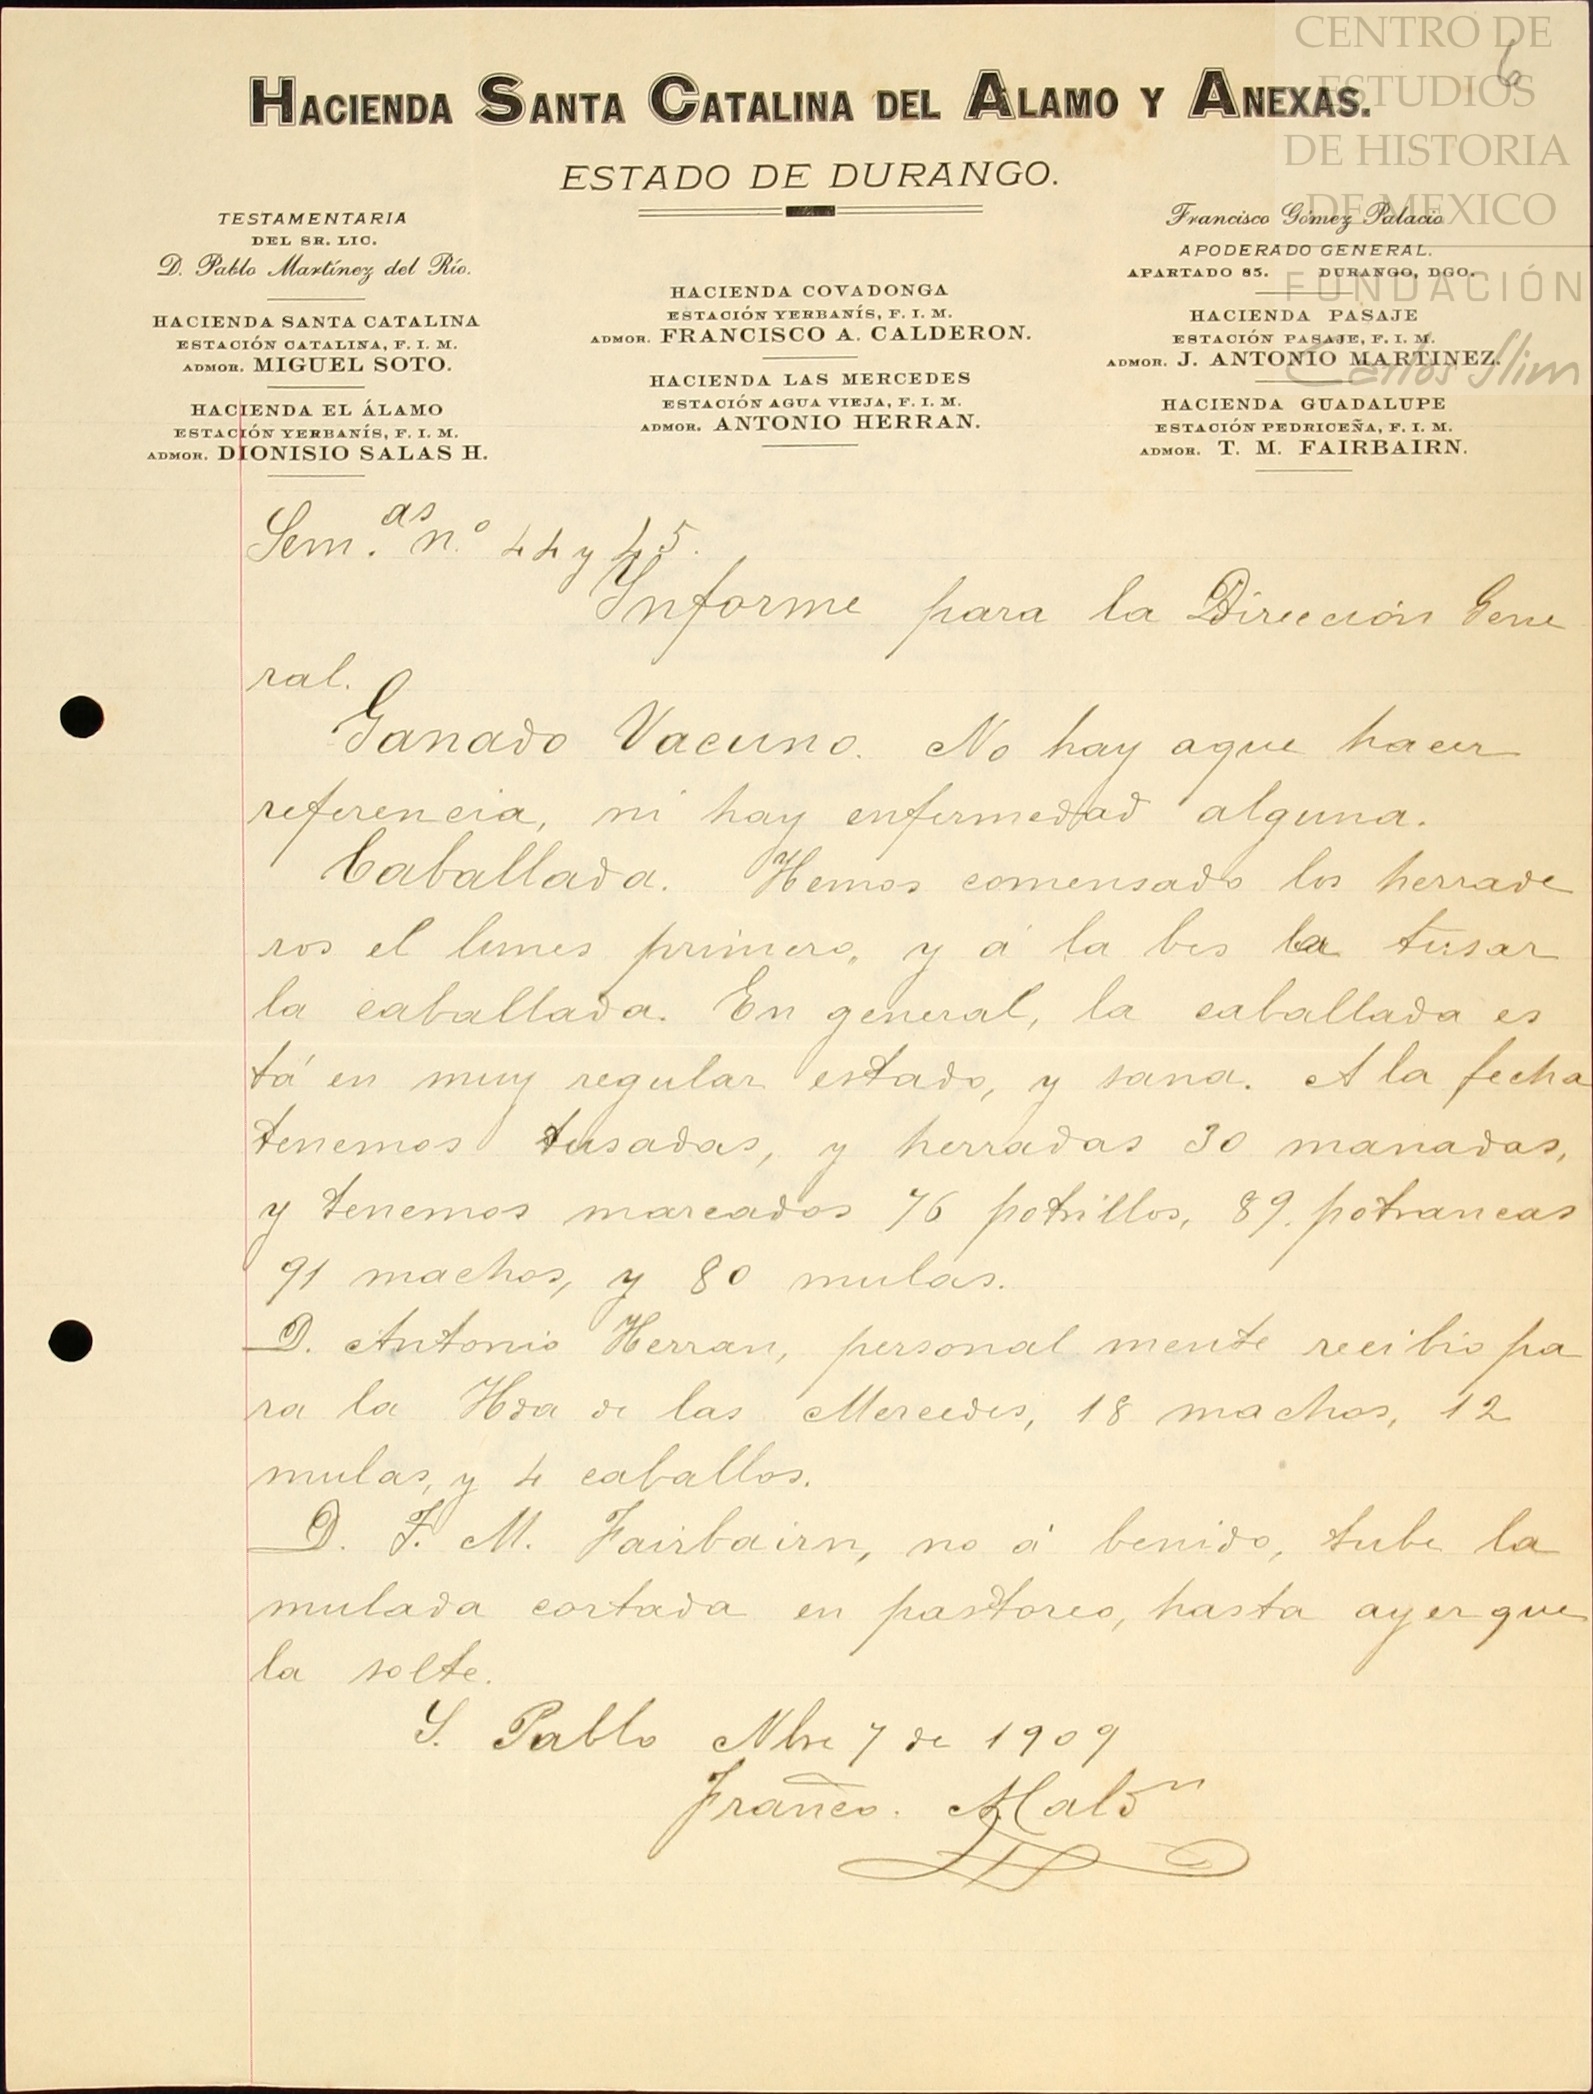 CENTRO DE
ESTUDIOS
DE HISTORIA
DE MEXICO
FUNDACIÓN
Carlos Slim
6
HACIENDA SANTA CATALINA DEL ALAMO Y ANEXAS.
ESTADO DE DURANGO.
TESTAMENTARIA
DEL SR. LIC.
D. Pablo Martínez del Río.
HACIENDA SANTA CATALINA
ESTACIÓN CATALINA, F. I. M.
ADMOR. MIGUEL SOTO.
HACIENDA EL ÁLAMO
ESTACIÓN YERBANÍS, F. I. M.
ADMOR. DIONISIO SALAS H.
HACIENDA COVADONGA
ESTACIÓN YERBANÍS, F. I. M.
ADMOR. FRANCISCO A. CALDERON.
HACIENDA LAS MERCEDES
ESTACIÓN AGUA VIEJA, F. I. M.
ADMOR. ANTONIO HERRAN.
Francisco Gómez Palacio
APODERADO GENERAL.
APARTADO 85. DURANGO, DGO.
HACIENDA PASAJE
ESTACIÓN PASAJE, F. I. M.
ADMOR. J. ANTONIO MARTINEZ.
HACIENDA GUADALUPE
ESTACIÓN PEDRICEÑA, F. I. M.
ADMOR. T. M. FAIRBAIRN.
Sem.as n.o 44 y 45.
Informe para la Dirección Gene
ral.
Ganado Vacuno. No hay aque hacer
referencia, ni hay enfermedad alguna.
Caballada. Hemos comensado los herrade
ros el lunes primero, y á la bes la tusar
la caballada. En general, la caballada es
tá en muy regular estado, y sana. A la fecha
tenemos tusadas, y herradas 30 manadas,
y tenemos marcados 76 potrillos, 89. potrancas
91 machos, y 80 mulas.
D. Antonio Herran, personal mente recibio pa
ra la Hda de las Mercedes, 18 machos, 12
mulas, y 4 caballos.
D. F. M. Fairbairn, no á benido, tube la
mulada cortada en pastoreo, hasta ayer que
la solte.
S. Pablo Nbre 7 de 1909
Franco.